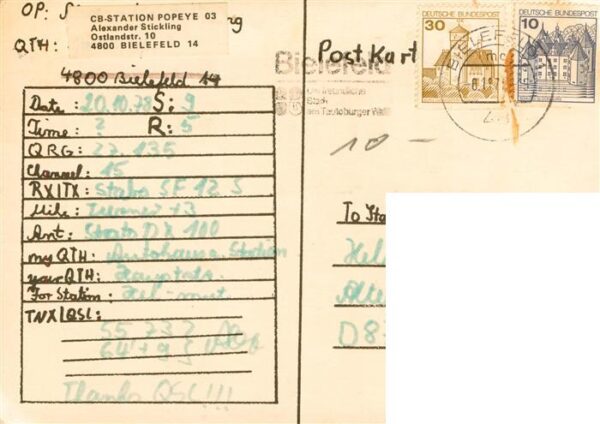 OP:
CB-STATION POPEYE 03
Alexander Stickling
Ostlandstr. 10
4800 BIELEFELD 14
QTH:
4800 Bielefeld 14
Date: 20.10.78 S: 9
Time: ? R: 5
QRG: 27.135
Channel: 15
RX/TX: Stabo SF 12 S
Mike: Turner +3
Ant: DX 100
my QTH: Station
your QTH:
For Station: Hel-mut
TNX/QSL:
55 73?
64 + 9
Thanks QSL!!!
Post Kart
Bielefeld
die freundliche
Stadt
am Teutoburger Wald
30 DEUTSCHE BUNDESPOST
10 DEUTSCHE BUNDESPOST
BIELEFELD
10-
To Sta
Hel
Alte
D8